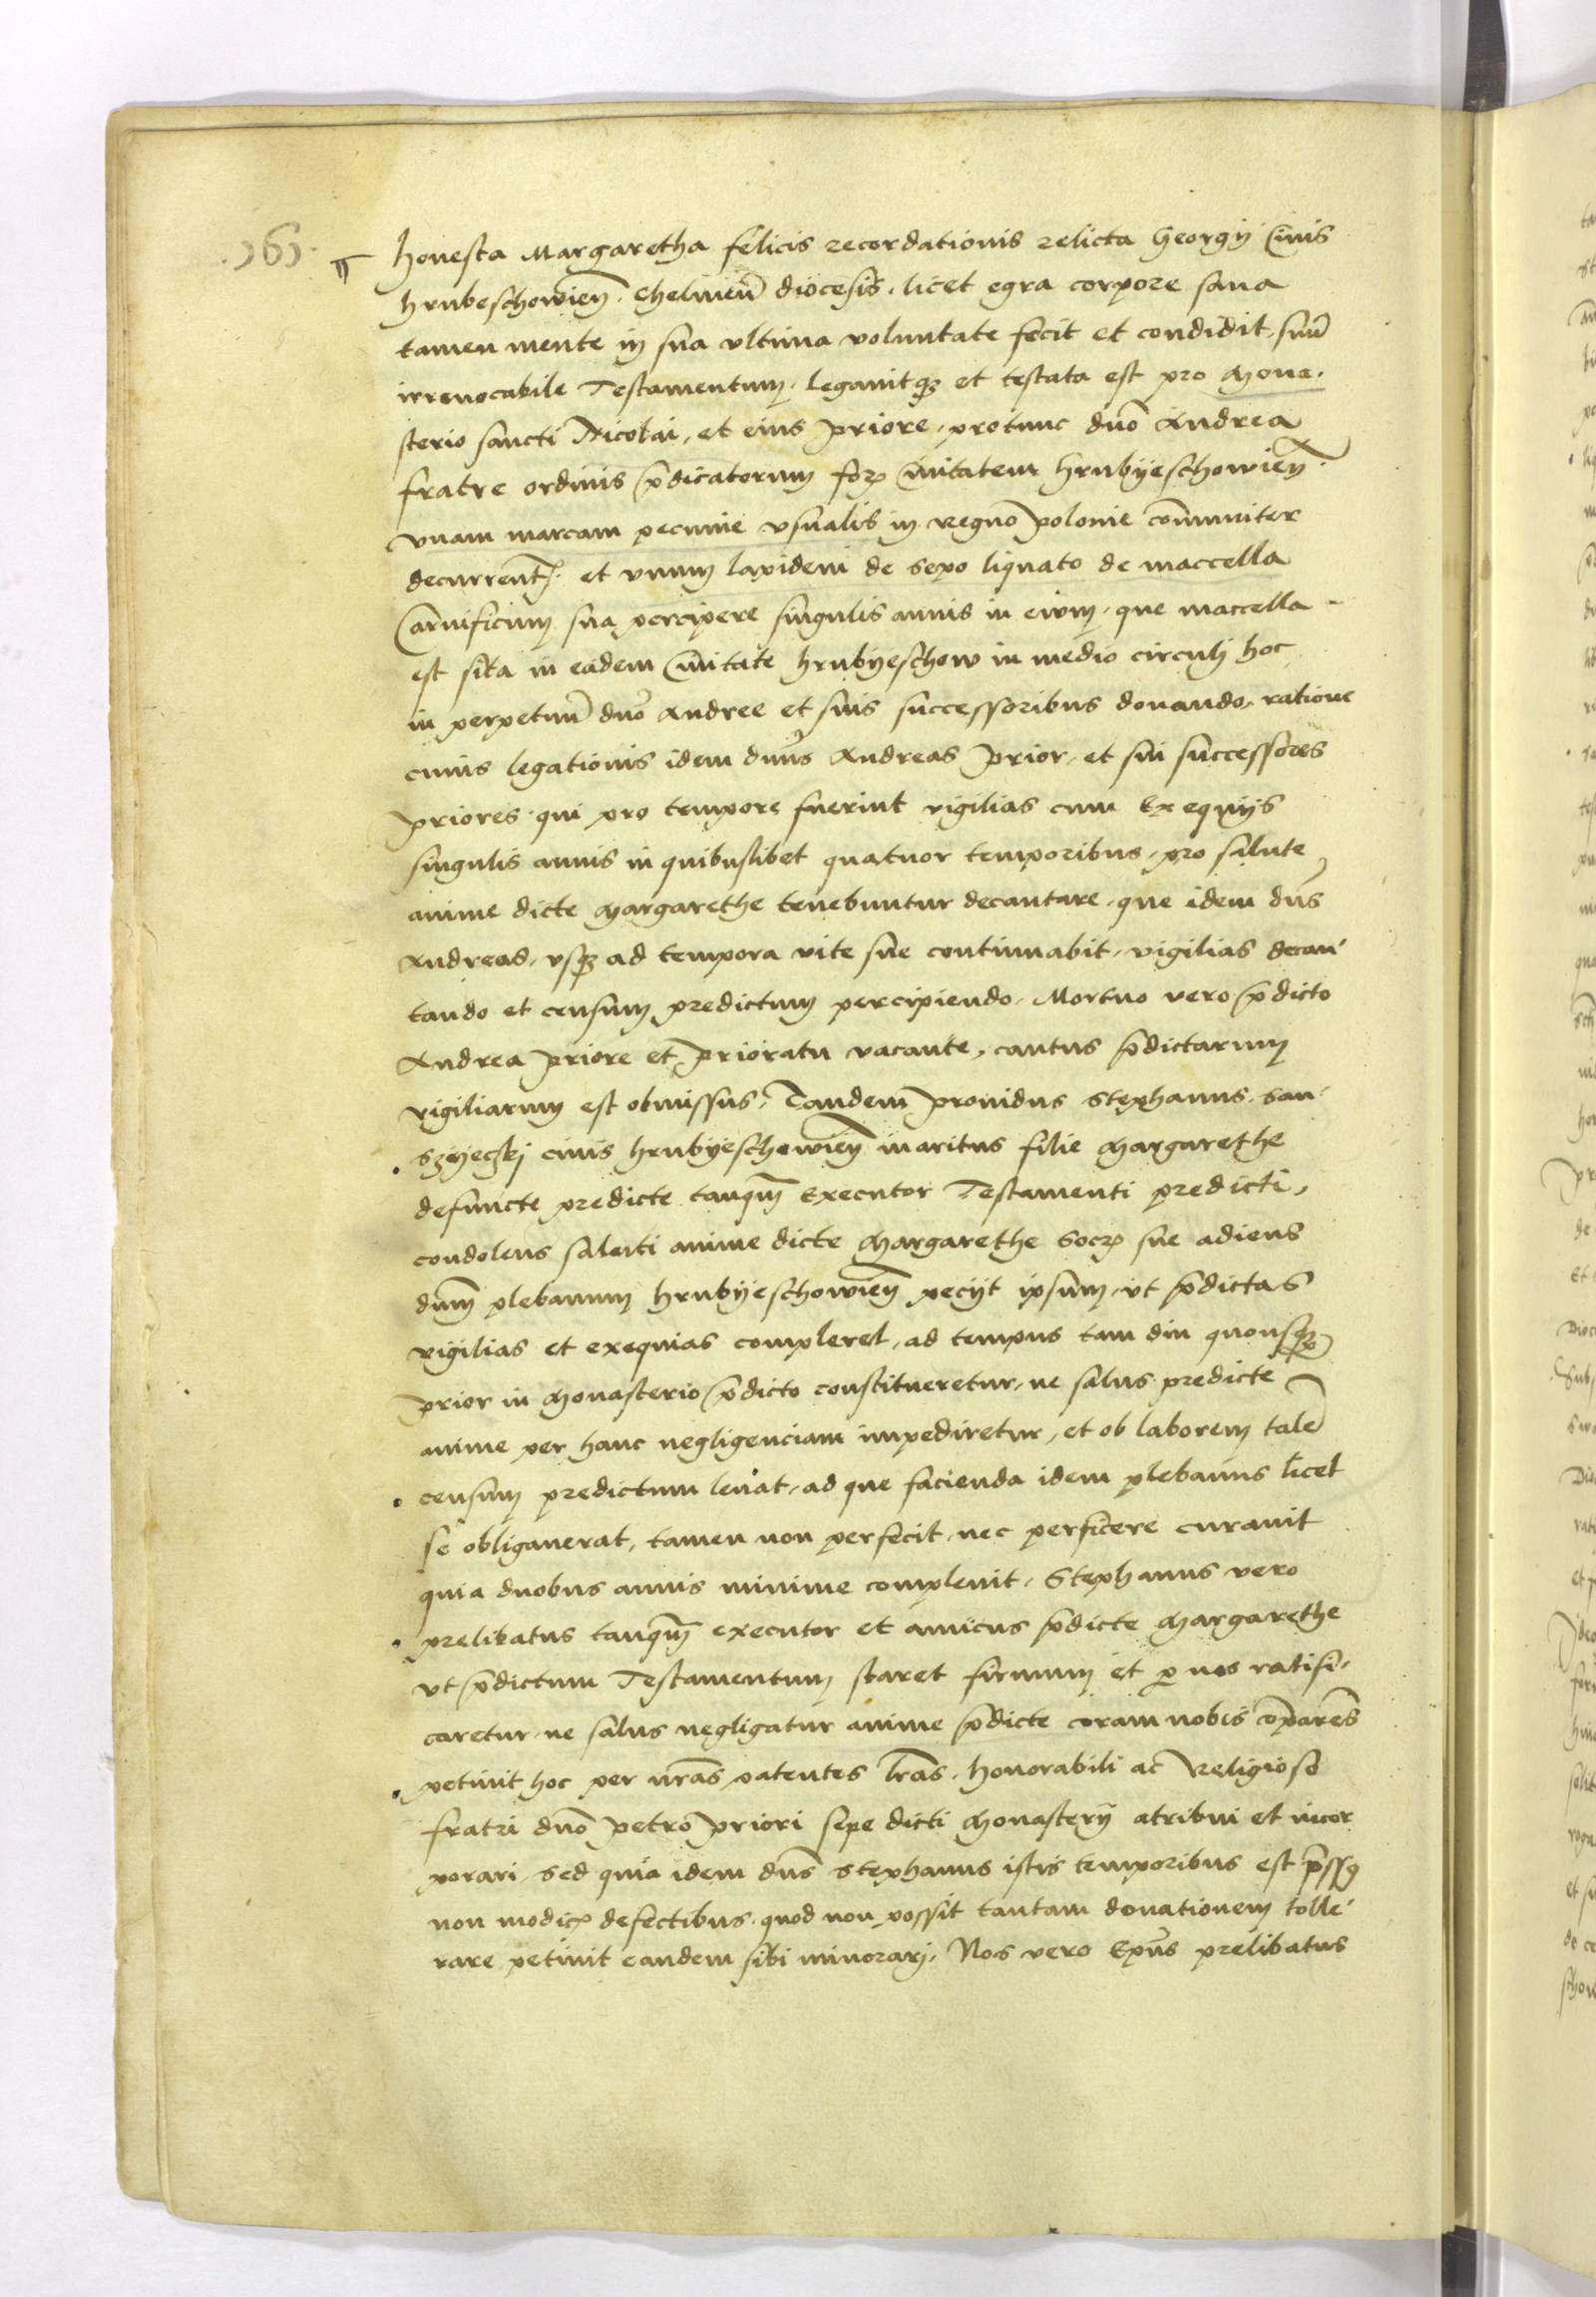 ¶ honesta Margaretha felicis recordationis relicta Georgij Ciuis
hrubeschowien̄. Chelmen̄ diocesis. licet egra corpore sana
tamen mente in sua vltima voluntate fecit et condidit suū
irreuocabile Testamentum. legauitqȝ et testata est pro Mona-
sterio sancti Nicolai, et eius priore, protunc dn̄o Andrea
fratre ordinis p̄dicatorum Ciuitatem hrubyeschowien̄.
vnam marcam pecunie vsualis in regno polonie com̄uniter
decurrent. et vnum lapidem de sepo liquato de maccella
Carnificum sua percipere singulis annis in eiuu, que maccella
est sita in eadem Ciuitate hrubyeschow in medio circulj hoc
in perpetuū dn̄o Andree et suis successoribus donando, ratione
cuius legationis idem dn̄us Andreas prior, et sui successores
priores qui pro tempore fuerint vigilias cum Exequijs
singulis annis in quibuslibet quatuor temporibus, pro salute
anime dicte Margarethe tenebuntur decantare, que idem dn̄s
Andreas, vsqȝ ad tempora vite sue continuabit, vigilias decan-
tando et censum predictum percipiendo. Mortuo vero p̄dicto
Andrea priore et prioratu vacante, cantus p̄dictarum
vigiliarum est obmissus, Tandem prouidus Stephanus San-
szyeczkj ciuis hrubyeschowien̄ maritus filie Margarethe
defuncte predicte tanqm̄ Executor Testamenti predicti,
condolens saluti anime dicte Margarethe Socr sue adiens
dnm̄ plebanum hrubyeschowien̄ pecijt ipsum, vt p̄dictas
vigilias et exequias compleret, ad tempus tam diu quousqȝ
prior in Monasterio p̄dicto constitueretur, ne salus predicte
anime per hanc negligenciam impediretur, et ob laborem talē
censum predictum leuat, ad que facienda idem plebanus licet
se obligauerat, tamen non perfecit, nec perficere curauit
quia duobus annis minime compleuit, Stephanus vero
prelibatus tanqm̄ executor et amicus p̄dicte Margarethe
vt p̄dictum Testamentum staret firmum et ꝑ nos ratifi-
caretur, ne salus negligatur anime p̄dicte coram nobis cōparēs
petiuit hoc per nr̄as patentes lr̄as. honorabili ac Religioso
fratri dn̄o petro priori sepe dicti Monasterij atribui et incor
porari, sed quia idem dn̄s Stephanus istis temporibus est p̄ssꝯ
non modic defectibus, quod non possit tantam donationem tolle-
rare petiuit eandem sibi minorarj, Nos vero Ep̄us prelibatus